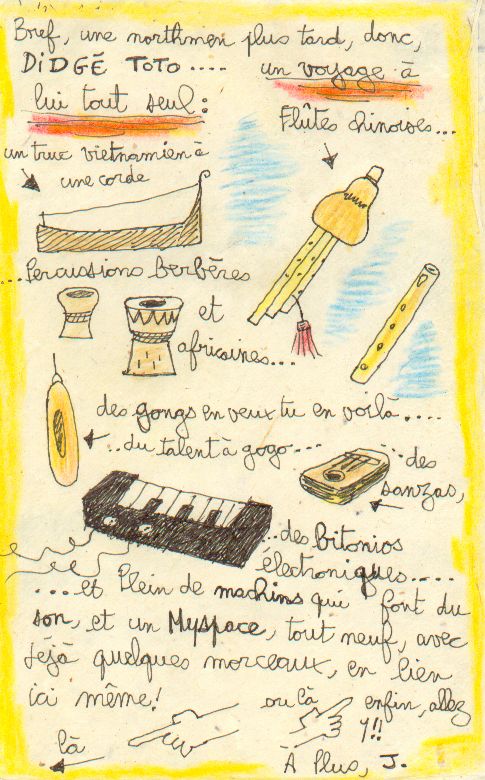 Bref, une northmen plus tard, donc,
DiDGÉ TOTO.... un voyage à
lui tout seul:
Flûtes chinoises...
un truc vietnamien à
une corde
...Percussions berbères
et
africaines...
des gongs en veux tu en voilà....
..du talent à gogo...
...des
sanzas,
...des bitonios
électroniques....
....et Plein de machins qui font du
son, et un Myspace, tout neuf, avec
déjà quelques morceaux, en lien
ici même!
ou là enfin, allez
y!!
là
À Plus, J.